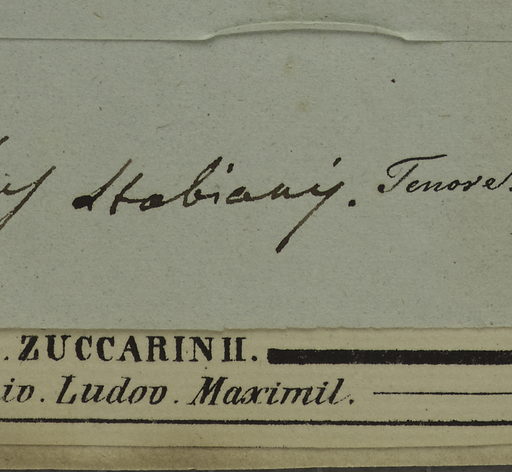 Stabianij. Tenore.
. ZUCCARINII.
io. Ludov. Maximil.